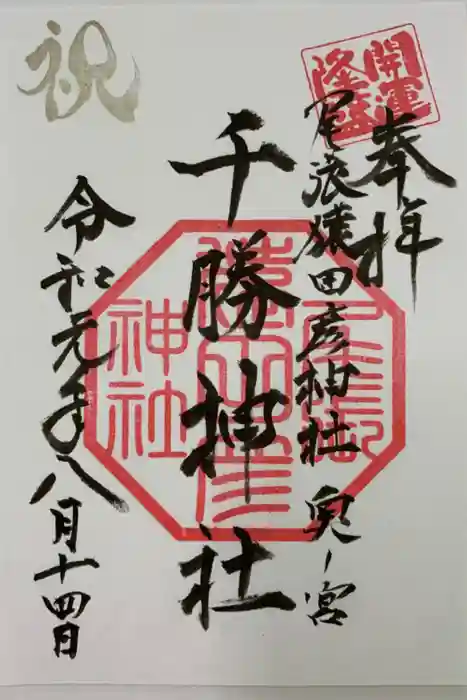 奉拝
開運
隆盛
尾張猿田彦神社 奥ノ宮
千勝神社
尾張
猿田彦
神社
祝
令和元年八月十四日